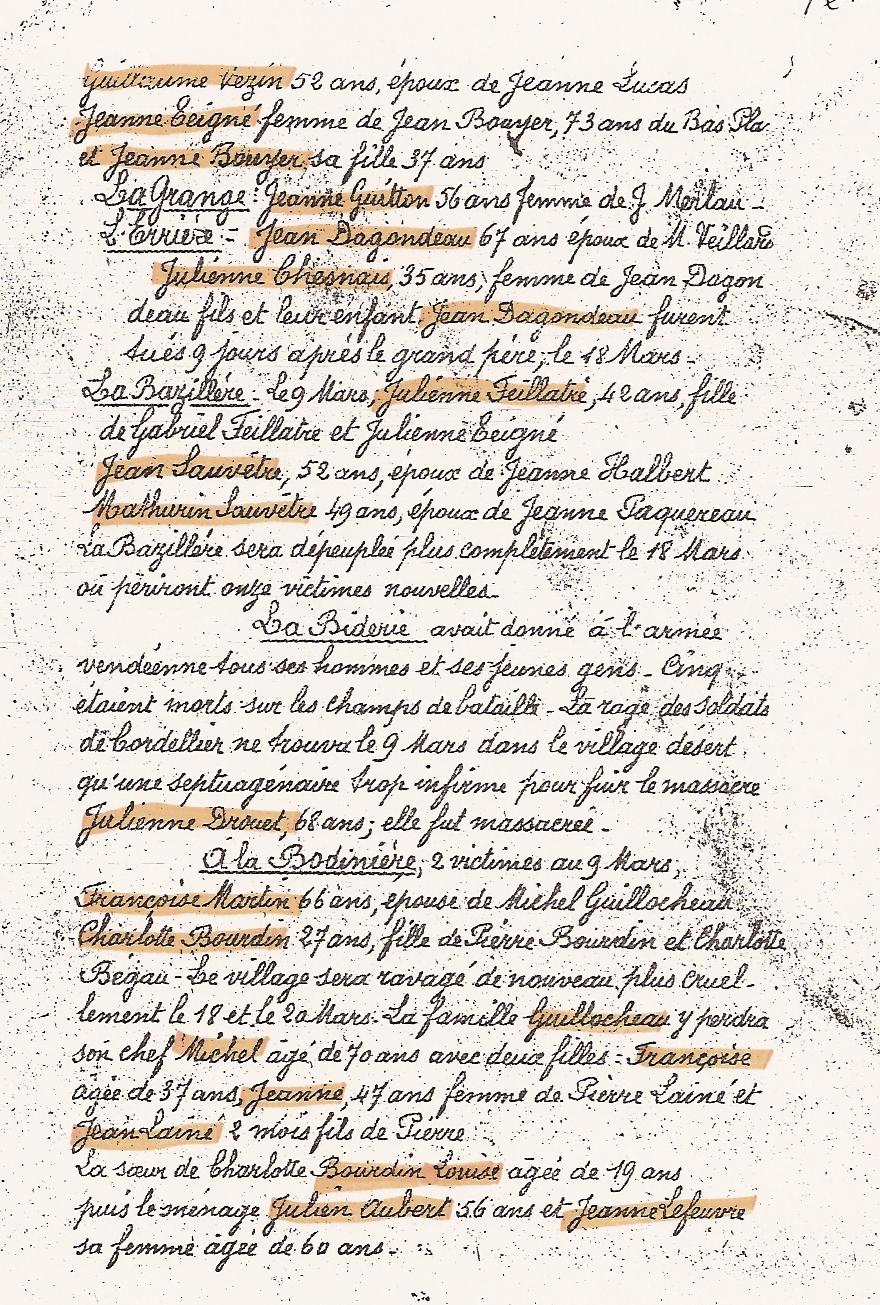 Guillaume Vezin 52 ans, époux de Jeanne Lucas
Jeanne Teigné femme de Jean Bouyer, 73 ans du Bas Pla
et Jeanne Bouyer sa fille 37 ans
La Grange : Jeanne Guitton 56 ans femme de J Merlau -
L'Errière - Jean Dagondeau 67 ans époux de M. Veillard
Julienne Chesnais, 35 ans, femme de Jean Dagon
deau fils et leur enfant Jean Dagondeau furent
tués 9 jours après le grand père, le 18 Mars -
La Bazillère - Le 9 Mars, Julienne Feillatre, 42 ans, fille
de Gabriel Feillatre et Julienne Teigné
Jean Sauvêtre, 52 ans, époux de Jeanne Halbert
Mathurin Sauvêtre 49 ans, époux de Jeanne Paquereau
La Bazillère sera dépeuplée plus complètement le 18 Mars
où périront onze victimes nouvelles -
La Biderie avait donné à l'armée
vendéenne tous ses hommes et ses jeunes gens - Cinq
étaient morts sur les champs de bataille - La rage des soldats
de Cordellier ne trouva le 9 Mars dans le village désert
qu'une septuagénaire trop infirme pour fuir le massacre
Julienne Drouet, 68 ans ; elle fut massacrée -
A la Bodinière, 2 victimes au 9 Mars,
Françoise Martin 66 ans, épouse de Michel Guillocheau
Charlotte Bourdin 27 ans, fille de Pierre Bourdin et Charlotte
Bégau - Le village sera ravagé de nouveau plus cruel-
lement le 18 et le 20 Mars - La famille Guillocheau y perdra
son chef Michel âgé de 70 ans avec deux filles : Françoise
âgée de 37 ans, Jeanne, 47 ans femme de Pierre Lainé et
Jean Lainé 2 mois fils de Pierre
La sœur de Charlotte Bourdin Louise âgée de 19 ans
puis le ménage Julien Aubert 56 ans et Jeanne Lefeuvre
sa femme âgée de 60 ans -